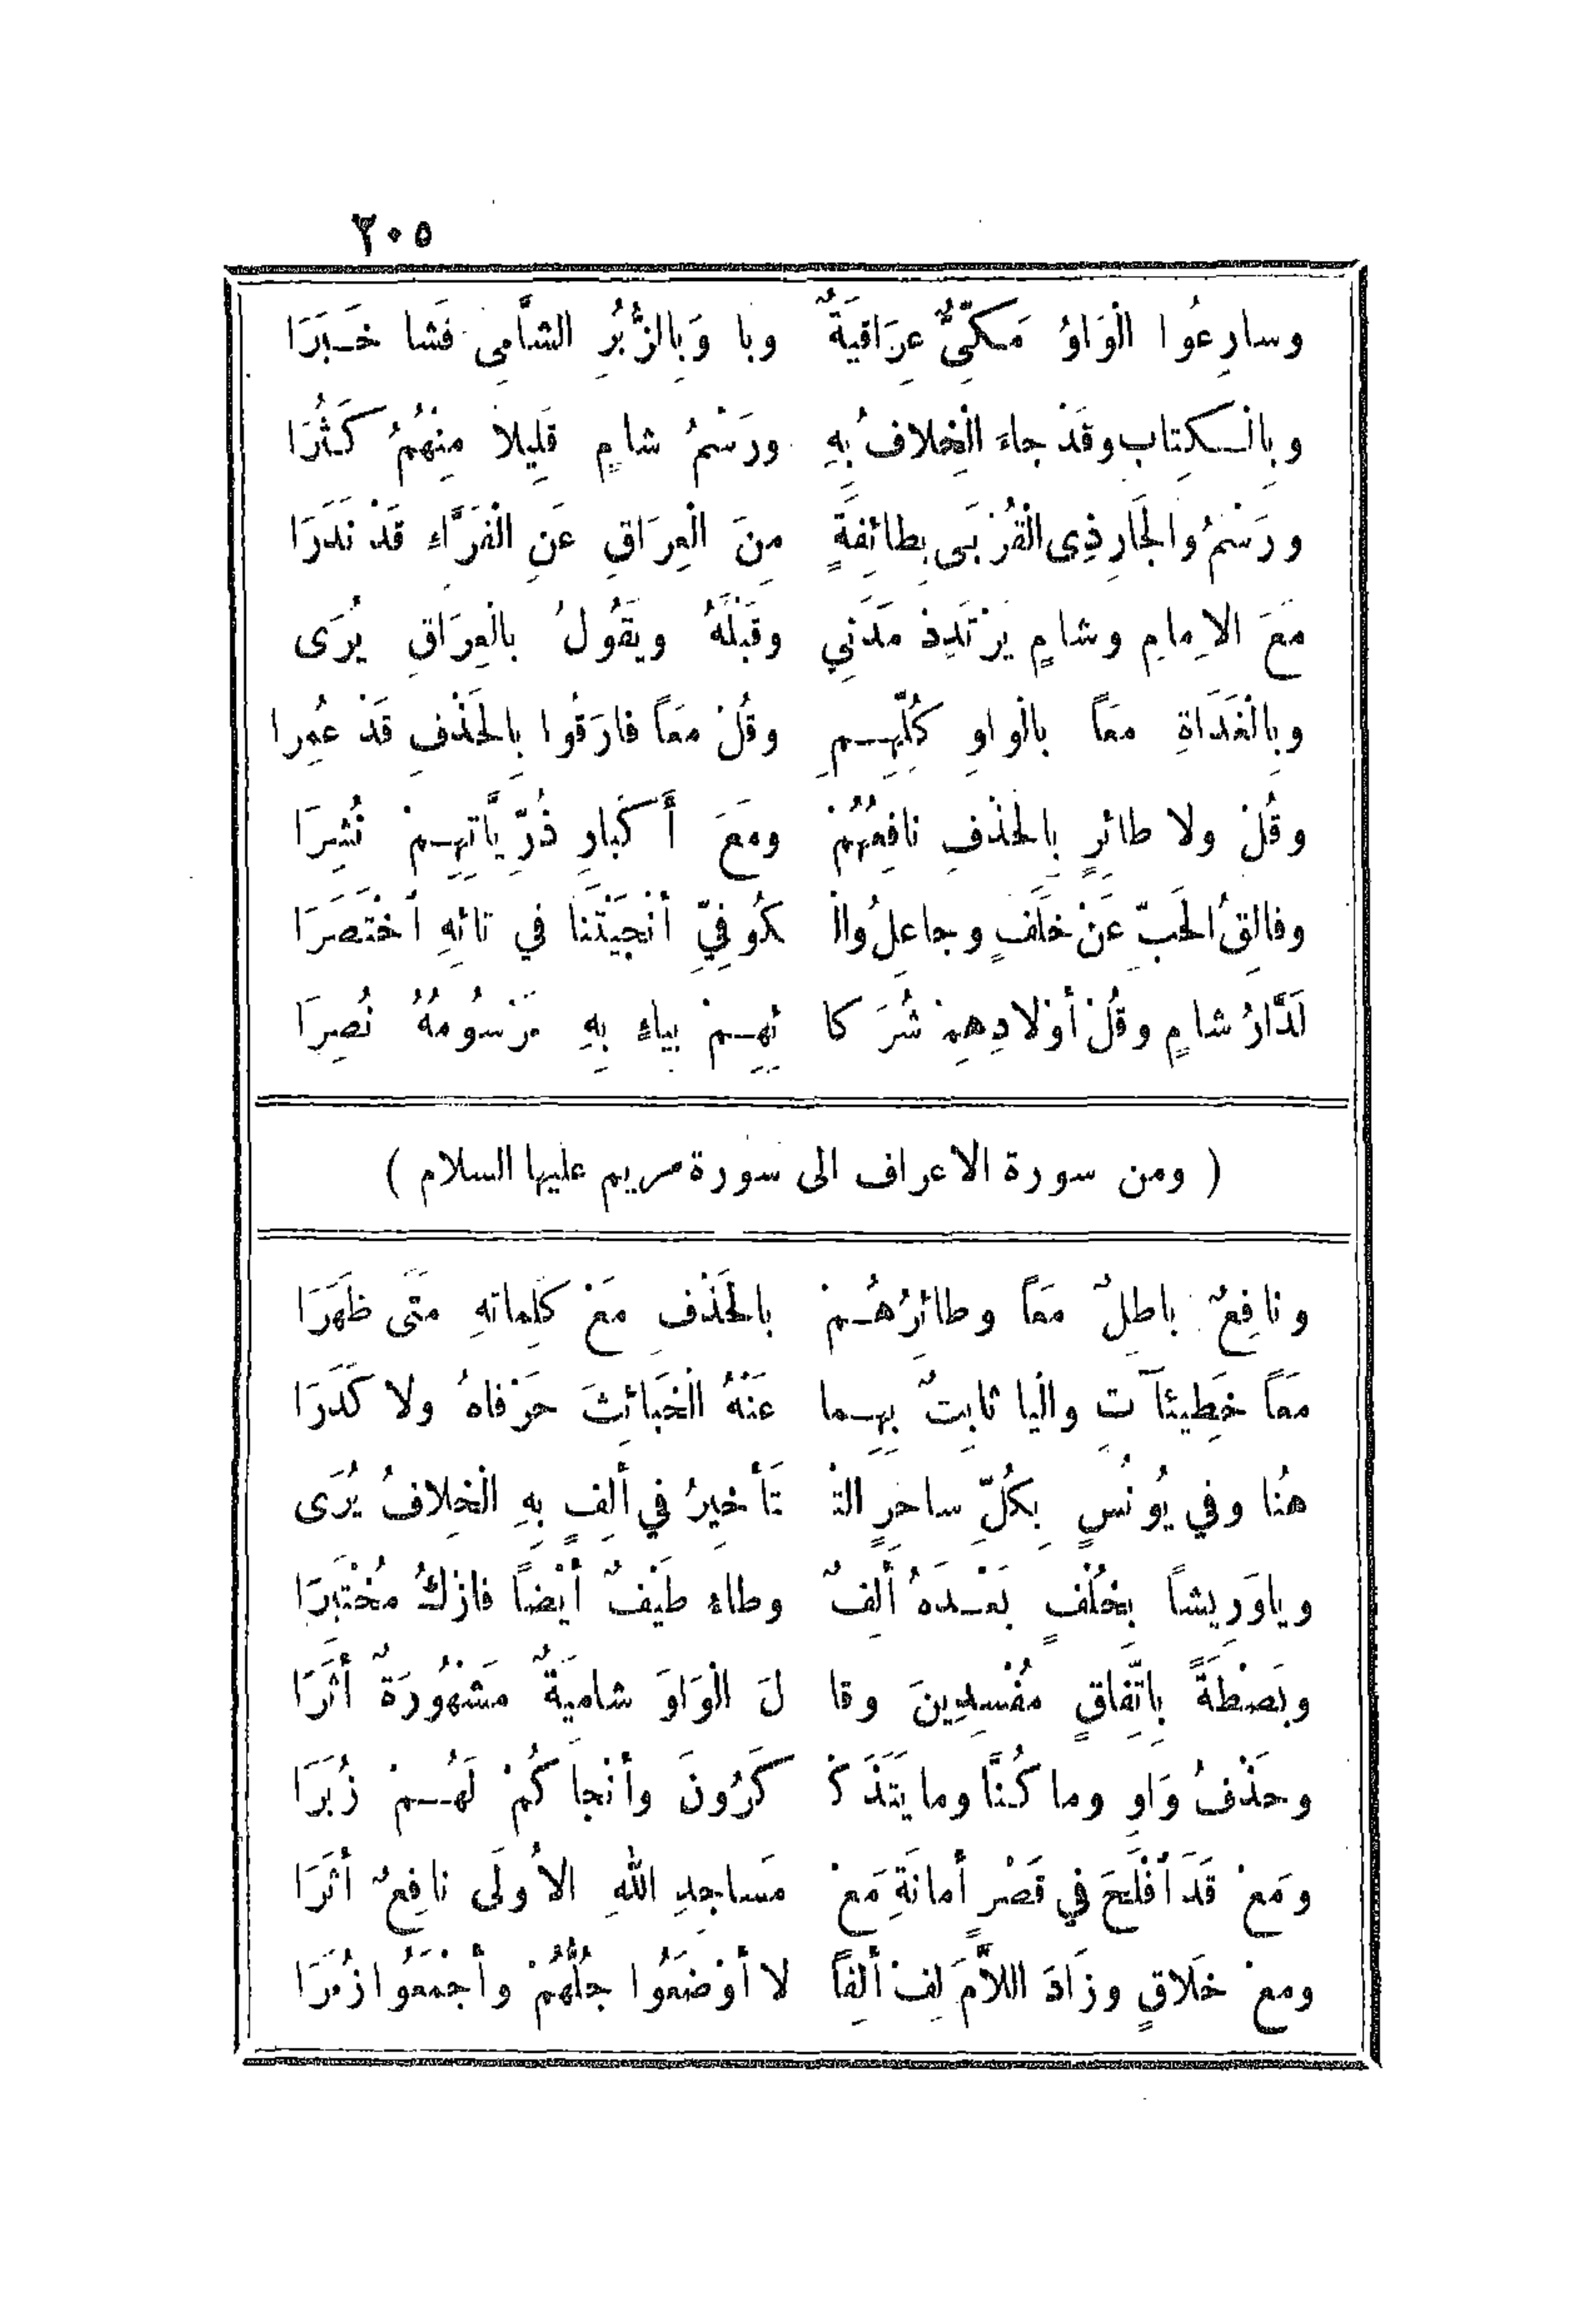 ٢٠٥
وسارِعُوا الْوَاوُ مَكِّىٌّ عِرَاقِيَةٌ وبا وَبِالزُّبُرِ الشَّامِى فَشا خَبَرَا
وبِالْكِتابِ وقَدْ جاءَ الْخِلافُ بِهِ ورَسْمُ شامٍ قَلِيلاً مِنْهُمُ كَثُرَا
ورَسْمُ والجَارِ ذِى الْقُرْبَى بِطائِفَةٍ مِنَ الْعِرَاقِ عَنِ الْفَرَّاءِ قَدْ نَدَرَا
مَعَ الاِمامِ وشامٍ يَرْتَدِدْ مَدَنِي وقَبْلَهُ ويَقُولُ بالْعِرَاقِ يُرَى
وبِالْغَدَاةِ مَعاً بالْواوِ كُلِّهِمِ وقُلْ مَعاً فارَقُوا بِالحَذْفِ قَدْ عُمِرا
وقُلْ ولا طائِرٍ بِالحَذْفِ نافِعُهُمْ ومَعَ أَكَبارِ ذُرِّيَّاتِهِمْ نُشِرَا
وفالِقُ الحَبِّ عَنْ خَلَفٍ وجاعِلُ والْ كُوفِيِّ أنْجَيْتَنَا في تائِهِ اخْتَصَرَا
لَدَّارُ شامٍ وقُلْ أوْلادِهِمْ شُرَكا ئِهِمْ بِياءٍ بِهِ مَرْسُومُهُ نُصِرَا
( ومن سورة الاعراف الى سورة مريم عليها السلام )
ونافِعٌ باطِلٌ مَعاً وطائِرُهُمْ بالحَذْفِ مَعْ كَلِماتِهِ مَتَى ظَهَرَا
مَعاً خَطِيئآتِ والْيا ثابِتٌ بِهِما عَنْهُ الْخَبَائِثَ حَرْفاهُ ولا كَدَرَا
هُنا وفي يُونُسٍ بِكُلِّ ساحِرٍ التْ تَأخِيرُ في ألِفٍ بِهِ الْخِلافُ يُرَى
وياوَرِيشاً بِخُلْفٍ بَعْدَهُ ألِفٌ وطاءِ طَيْفٌ أيْضاً فازْكُ مُخْتَبِرَا
وبَصْطَةً بِاتِّفَاقٍ مُفْسِدِينَ وقا لَ الْوَاوَ شامِيَةٌ مَشْهُورَةٌ أثَرَا
وحَذْفُ وَاوِ وما كُنَّا وما يَتَذَكْ كَرُونَ وأنْجاكُمْ لَهُمْ زُبَرَا
ومَعْ قَدَ افْلَحَ في قَصْرٍ أمانَةِ مَعْ مَساجِدِ اللهِ الاُولَى نافِعٌ أثَرَا
ومعْ خلَاقٍ وزَادَ اللاَّمَ لِفْ ألِفاً لا أوْضَعُوا جُلُّهُمْ وأجْمَعُوا زُمَرَا